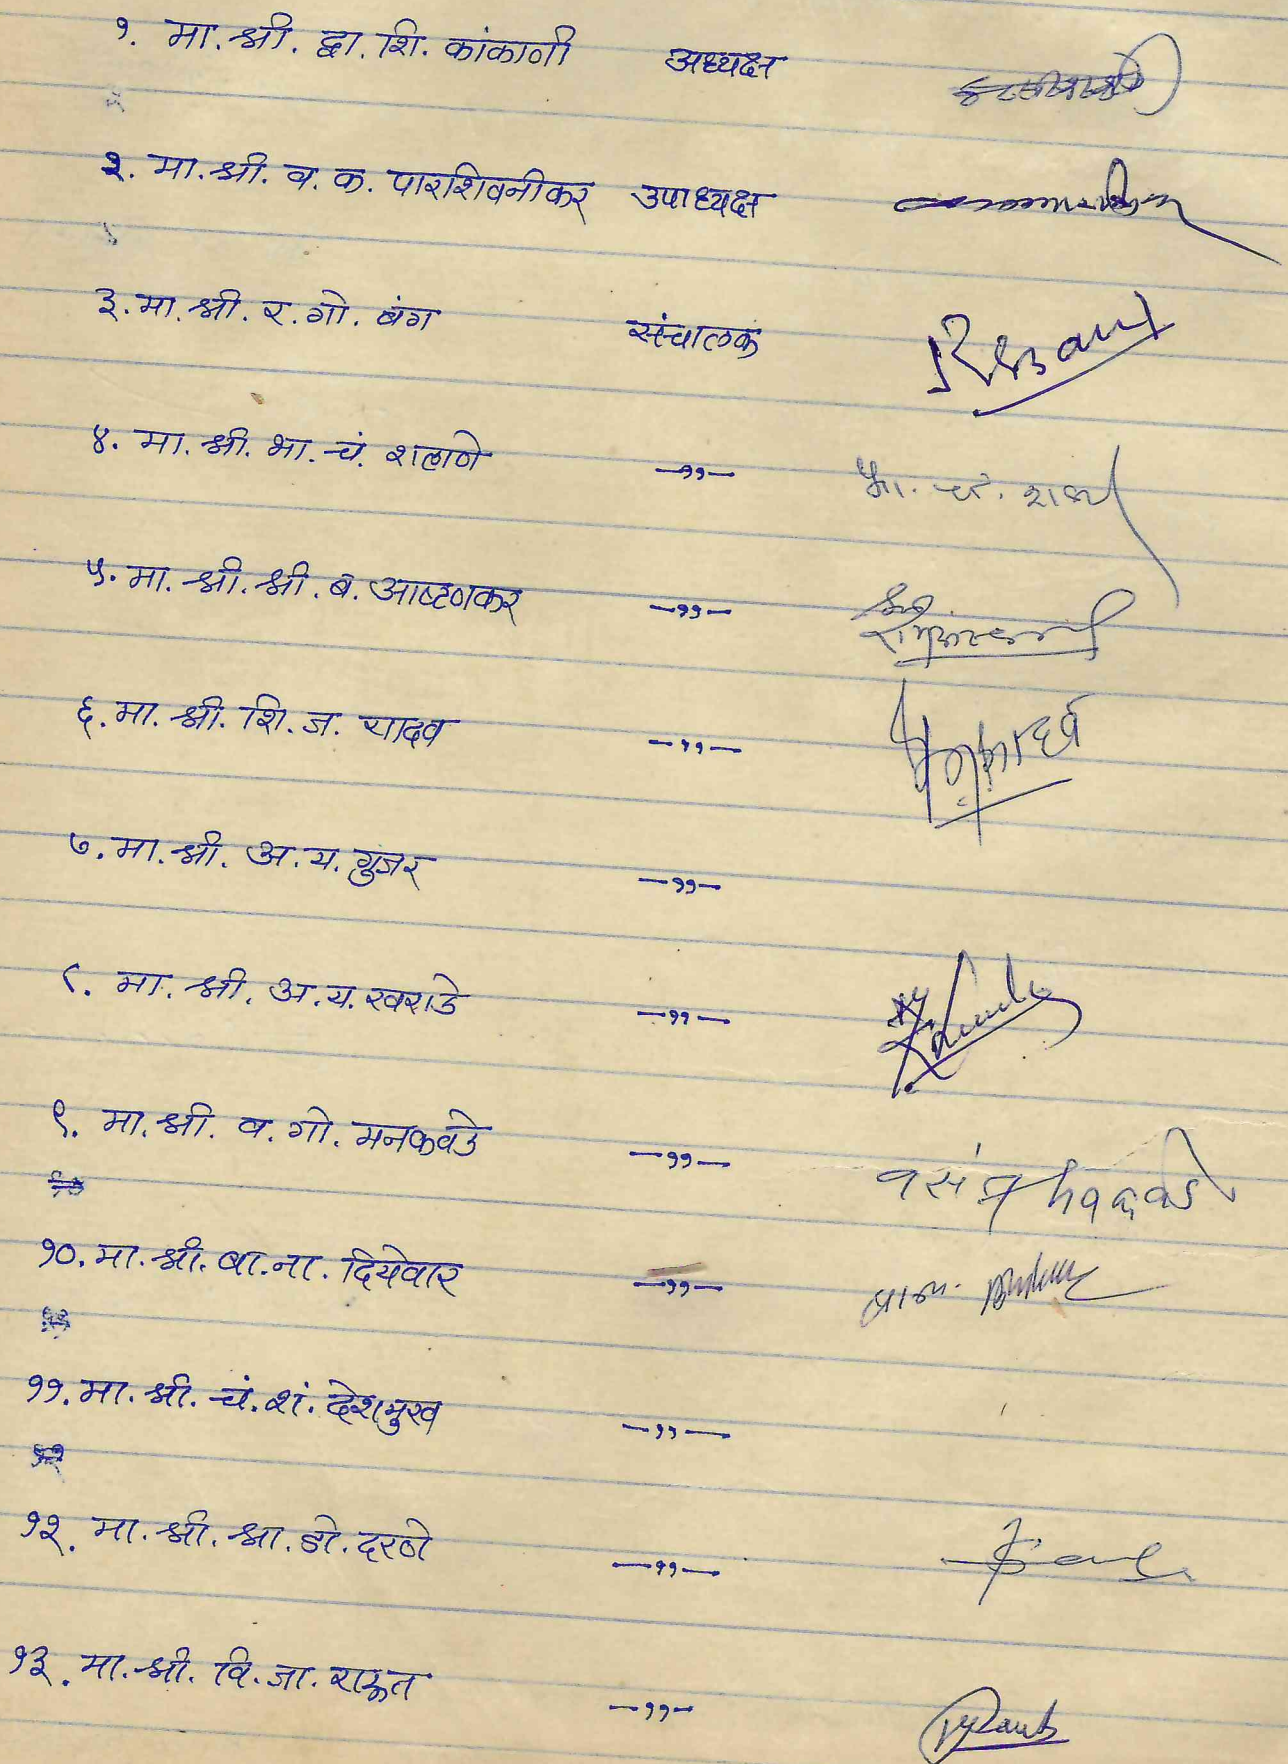 १. मा. श्री. द्वा. शि. कांकाणी अध्यक्ष
२. मा. श्री. व. क. पारशिवनीकर उपाध्यक्ष
३. मा. श्री. र. गो. बंग संचालक Rgbang
४. मा. श्री. भा. चं. शलाणे —ээ— भा. चं.
५. मा. श्री. श्री. ब. आष्टणकर —,,—
६. मा. श्री. शि. ज. यादव —,,—
७. मा. श्री. अ. य. गुजर —,,—
८. मा. श्री. अ. य. खराडे —,,—
९. मा. श्री. व. गो. मनकवडे —,,— वसंत मनकवडे
१०. मा. श्री. बा. ना. दियेवार —,,—
११. मा. श्री. चं. शं. देशमुख —,,—
१२. मा. श्री. श्रा. डो. दरणे —,,—
१३. मा. श्री. वि. जा. राऊत —,,— VJRaut